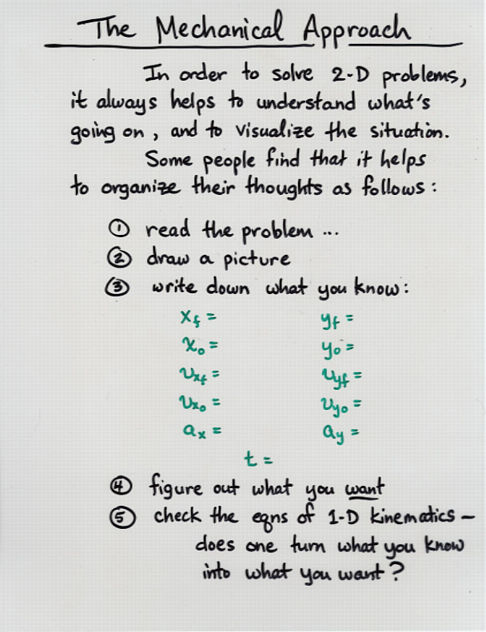 The Mechanical Approach
In order to solve 2-D problems,
it always helps to understand what's
going on, and to visualize the situation.
Some people find that it helps
to organize their thoughts as follows:
① read the problem ...
② draw a picture
③ write down what you know:
x_f = y_f =
x_o = y_o =
v_xf = v_yf =
v_xo = v_yo =
a_x = a_y =
t =
④ figure out what you want
⑤ check the eqns of 1-D kinematics —
does one turn what you know
into what you want?